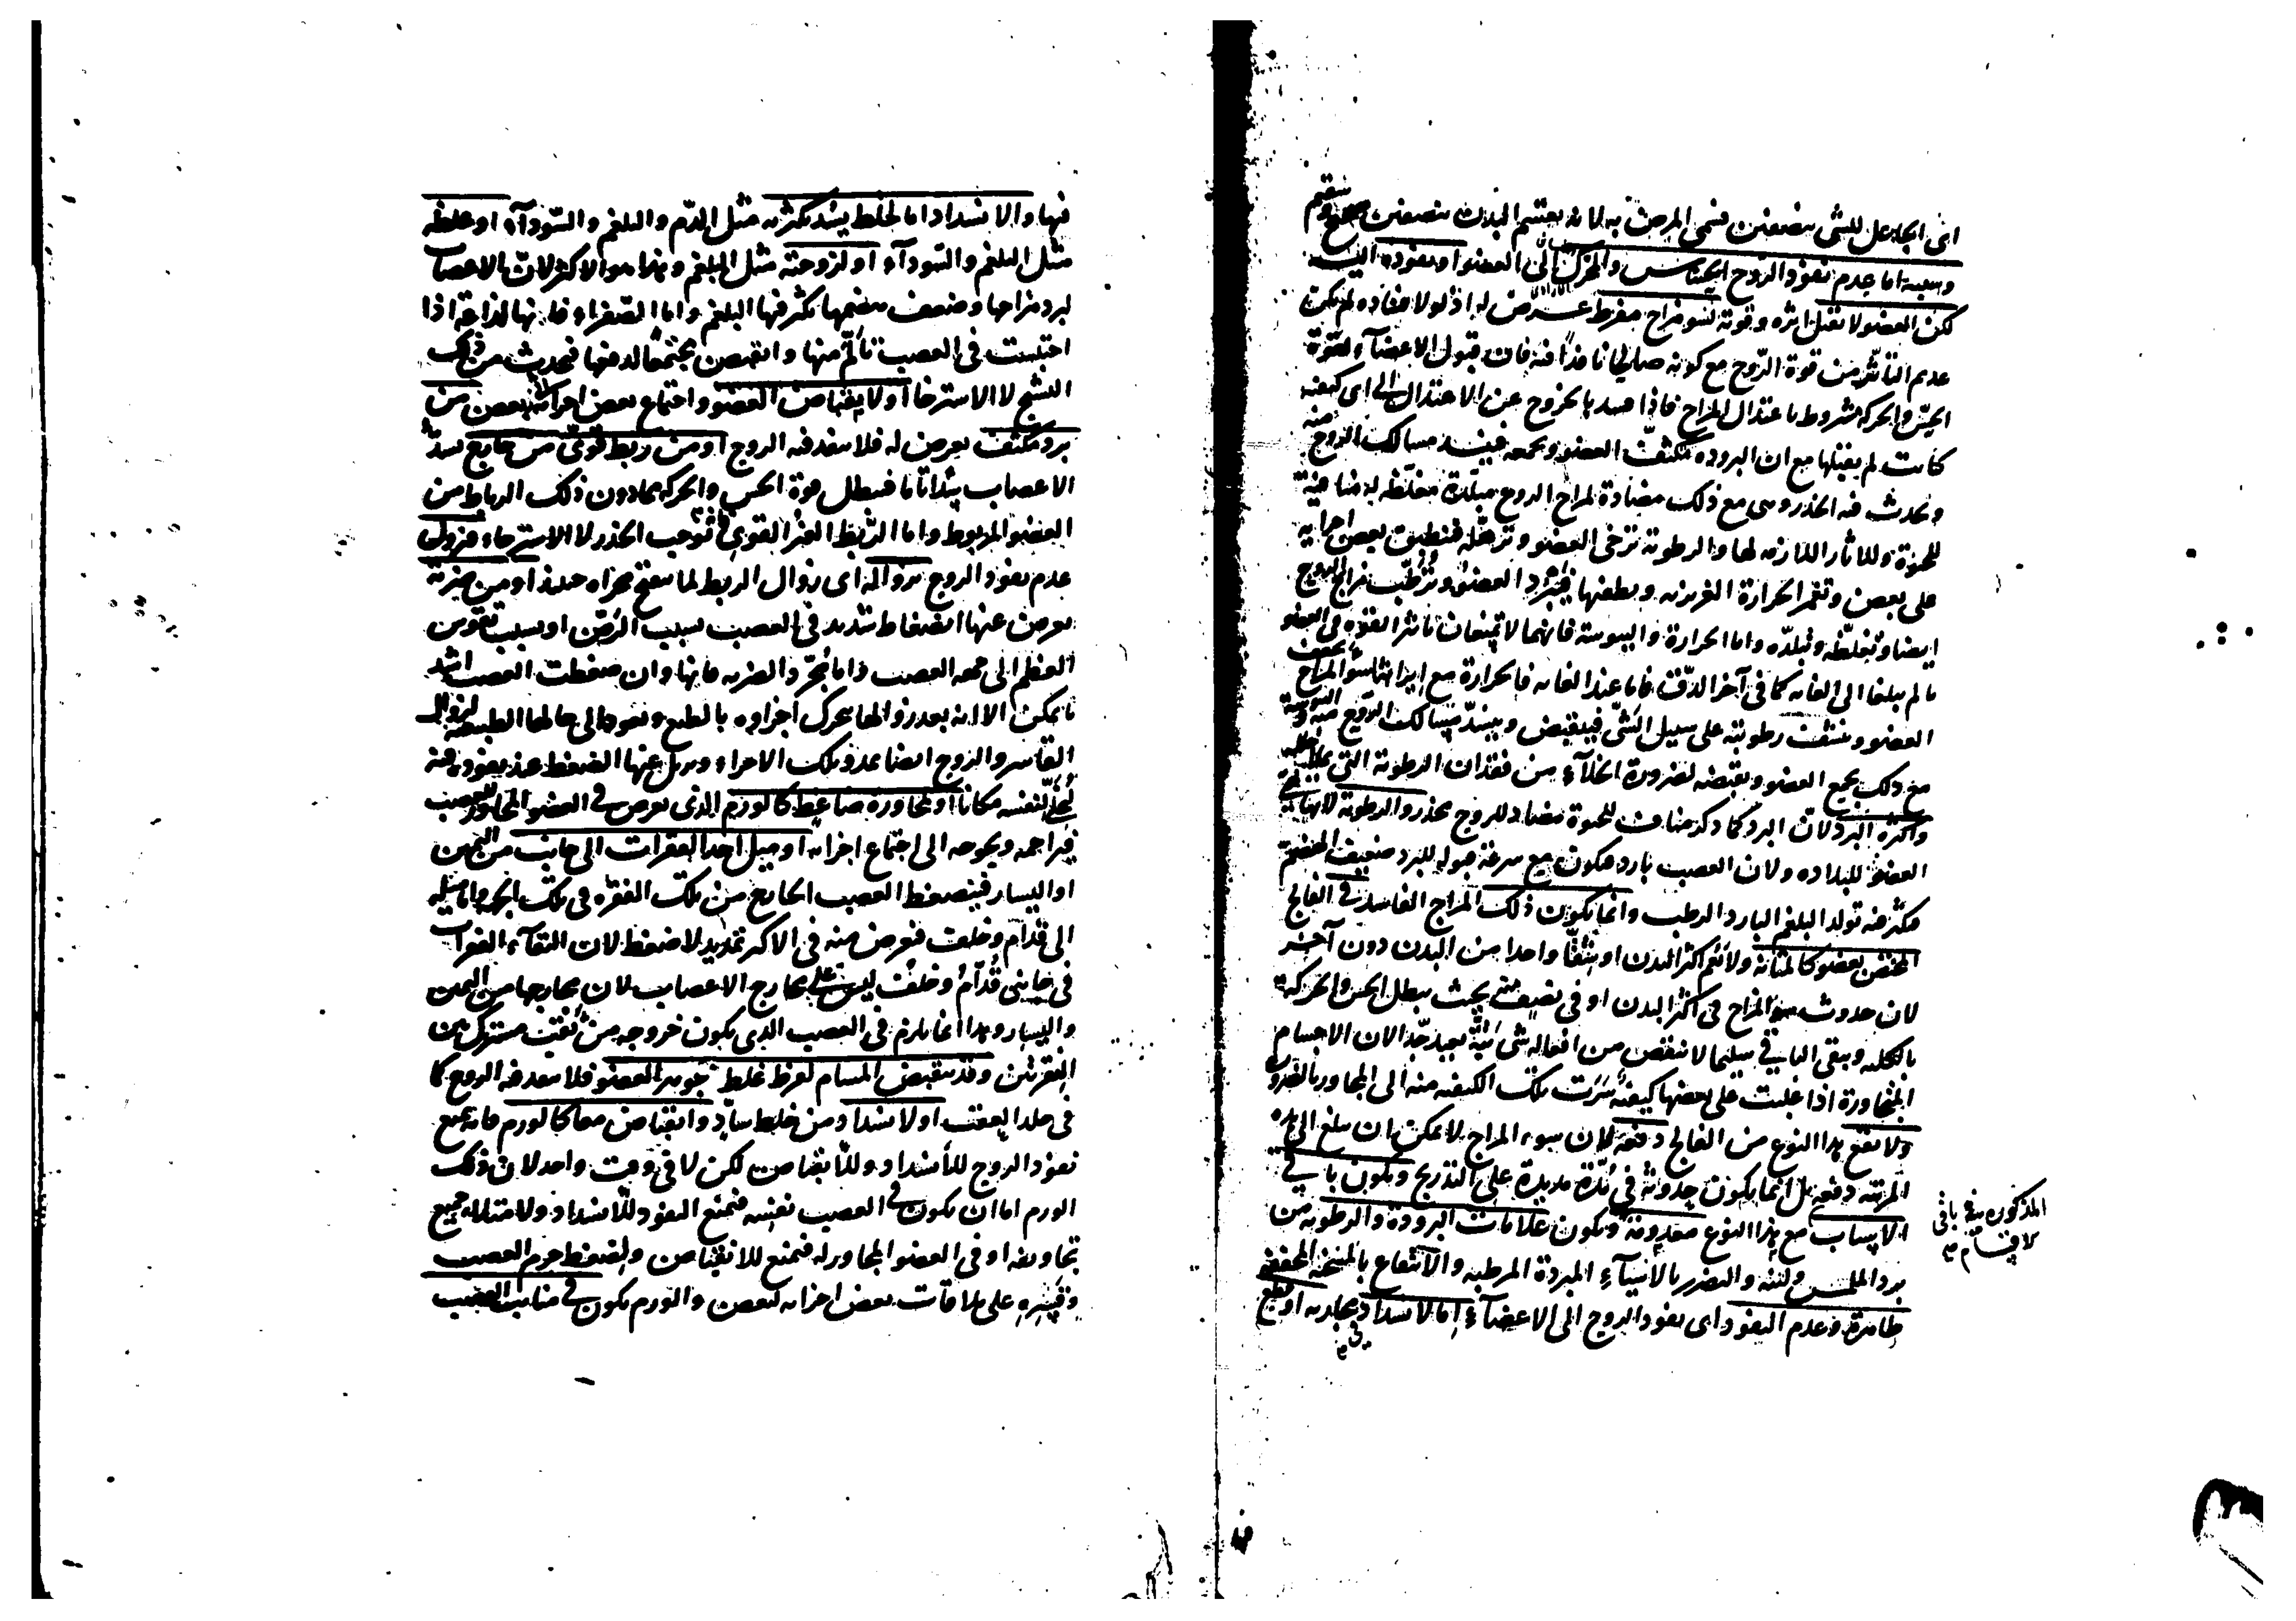 اى الجاعل للشى بنصفين فسمى المرض به لانه يقسم البدن بنصفين صحيح وسقيم
وسببه اما عدم نفوذ الروح الحساس والمحرك الى العضو او نفوذه اليه
لكن العضو لا يقبل اثره وقوته لسو مزاج مفرط عرض له اذ لولا فساده لم يكن
عديم التأثر من قوة الروح مع كونه صار اليه نافذا فيه فان قبول الاعضآء لقوة
الحس والحركة مشروط باعتدال المزاج فاذا فسد بالخروج عن الاعتدال الى اى كيفيه
كانت لم يقبلها مع ان البروده تكثف العضو وتجمعه فيسد مسالك الروح منه
ويحدث فيه الخدر وهى مع ذلك مضادة لمزاج الروح مبلدة مغلظه له منافية
للحيوة وللاثار اللازمه لها والرطوبة ترخى العضو وترهله فتنطبق بعض اجزايه
على بعض وتغمر الحرارة الغريزيه وبطفئها فيبرد العضو وترطب مزاج الروح
ايضا وتغلظه وتبلده واما الحرارة واليبوسة فانهما لا تمنعان تاثير القوه فى العضو
ما لم يبلغا الى الغايه كما فى آخر الدق فاما عند الغايه فالحرارة مع ايراثها سو المزاج يجفف
العضو وينشف رطوبته على سبيل الشى فينقبض وينسد مسالك الروح فيه واليبوسة
مع ذلك يجمع العضو ويقبضه لضرورة الخلآء من فقدان الرطوبة التى
واكثره البرد لان البرد كما ذكر مناف للحيوة مضاد للروح مخدر والرطوبة لانها
العضو للبلاده ولان العصب بارد فيكون مع سرعة قبوله للبرد ضعيف الهضم
فيكثر فيه تولد البلغم البارد الرطب وانما يكون ذلك المزاج الفاسد فى الفالج
المختص بعضو كالمثانة ولا يعم اكثر البدن او شقا واحدا من البدن دون آخر
لان حدوث سو المزاج فى اكثر البدن او فى نصفه بحيث يبطل الحس والحركة
بالكليه ويبقى الباقى سليما لا ينقص من افعاله شى البتة بعيد جدا لان الاجسام
المتجاورة اذا غلبت على بعضها كيفية سرت تلك الكيفيه منه الى المجاور بالضرورة
ولا يقع هذا النوع من الفالج دفعة لان سوء المزاج لا يمكن ان يبلغ الى هذه
المرتبه دفعه بل انما يكون حدوثه فى مدة مديدة على التدريج ويكون باقى
الاسباب مع هذا النوع معدومة ويكون علامات البرودة والرطوبه من
برد الملمس ولينه والتضرر بالاشيآء المبردة المرطبه والانتفاع بالمسخنه المجففه
ظاهرة وعدم النفوذ اى نفوذ الروح الى الاعضآء اما لانسداد مجاريه او قطع
المذكوره فى باقى
الاقسام
فيها والانسداد اما لخلط يسد بكثرته مثل الدم والبلغم والسودآء او غلظه
مثل البلغم والسودآء او لزوجته مثل البلغم وهذا هو الاكثر لان الاعصاب
لبرد مزاجها وضعف هضمها يكثر فيها البلغم واما الصفراء فانها لذاعة اذا
احتبست فى العصب تألم منها وانقبض مجتمعا لدفعها فيحدث من ذلك
التشنج لا الاسترخا او لانقباض العضو واجتماع بعض اجزائه لبعض من
برد مكثف يعرض له فلا ينفذ فيه الروح او من ربط قوى من خارج يسد
الاعصاب سدا تاما فيبطل قوة الحس والحركة مما دون ذلك الرباط من
العضو المربوط واما الربط الغير القوى فيوجب الخدر لا الاسترخاء فيزول
عدم نفوذ الروح بزواله اى زوال الربط لما ينفتح مجراه حينئذ او من ضربة
يعرض عنها انضغاط شديد فى العصب بسبب الرض او بسبب تقوس
العظم الى جهه العصب واما مجرد الضربه فانها وان ضغطت العصب اشد
ما يمكن الا انه بعد زوالها يتحرك اجزاؤه بالطبع ويعود الى حالها الطبيعيه لزوال
القاسر والروح ايضا يمدد تلك الاجزاء ويزيل عنها الضغط عند نفوذه فيه
ليخلى لنفسه مكانا او لمجاورة ضاغط كالورم الذى يعرض فى العضو المجاور للعصب
فيزاحمه ويحوجه الى اجتماع اجزائه او ميل احد الفقرات الى جانب من اليمين
او اليسار فينضغط العصب الخارج من تلك الفقره فى تلك الجهه واما ميله
الى قدام وخلف فيعرض منه فى الاكثر تمديد لا ضغط لان التقآء الفقرات
فى جانبى قدام وخلف ليس على مخارج الاعصاب لان مخارجها من اليمين
واليسار وهذا انما يلزم فى العصب الذى يكون خروجه من ثقبة مشتركة بين
الفقرتين وقد ينقبض المسام لفرط غلظ جوهر العضو فلا ينفذ فيه الروح كما
فى جلد العقب او لانسداد من خلط ساد وانقباض معا كالورم فانه يمنع
نفوذ الروح للانسداد وللانقباض لكن لا فى وقت واحد لان ذلك
الورم اما ان يكون فى العصب نفسه فيمنع النفوذ للانسداد ولامتلاء جميع
تجاويفه او فى العضو المجاور له فيمنع للانقباض ولضغط جرم العصب
وقسره على ملاقات بعض اجزائه لبعض والورم يكون فى منابت العصب